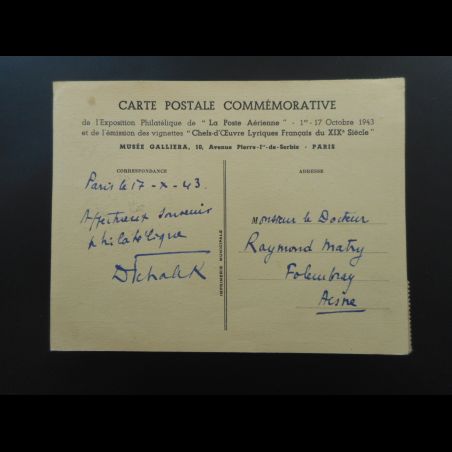 CARTE POSTALE COMMÉMORATIVE
de l'Exposition Philatélique de "La Poste Aérienne" - 1er - 17 Octobre 1943
et de l'émission des vignettes "Chefs-d'Œuvre Lyriques Français du XIXe Siècle"
MUSÉE GALLIERA, 10, Avenue Pierre-Ier-de-Serbie - PARIS
CORRESPONDANCE
Paris le 17-X-43.
Affectueux souvenir
philatélique
IMPRIMERIE MUNICIPALE
ADRESSE
Monsieur le Docteur
Raymond Matry
Folembray
Aisne